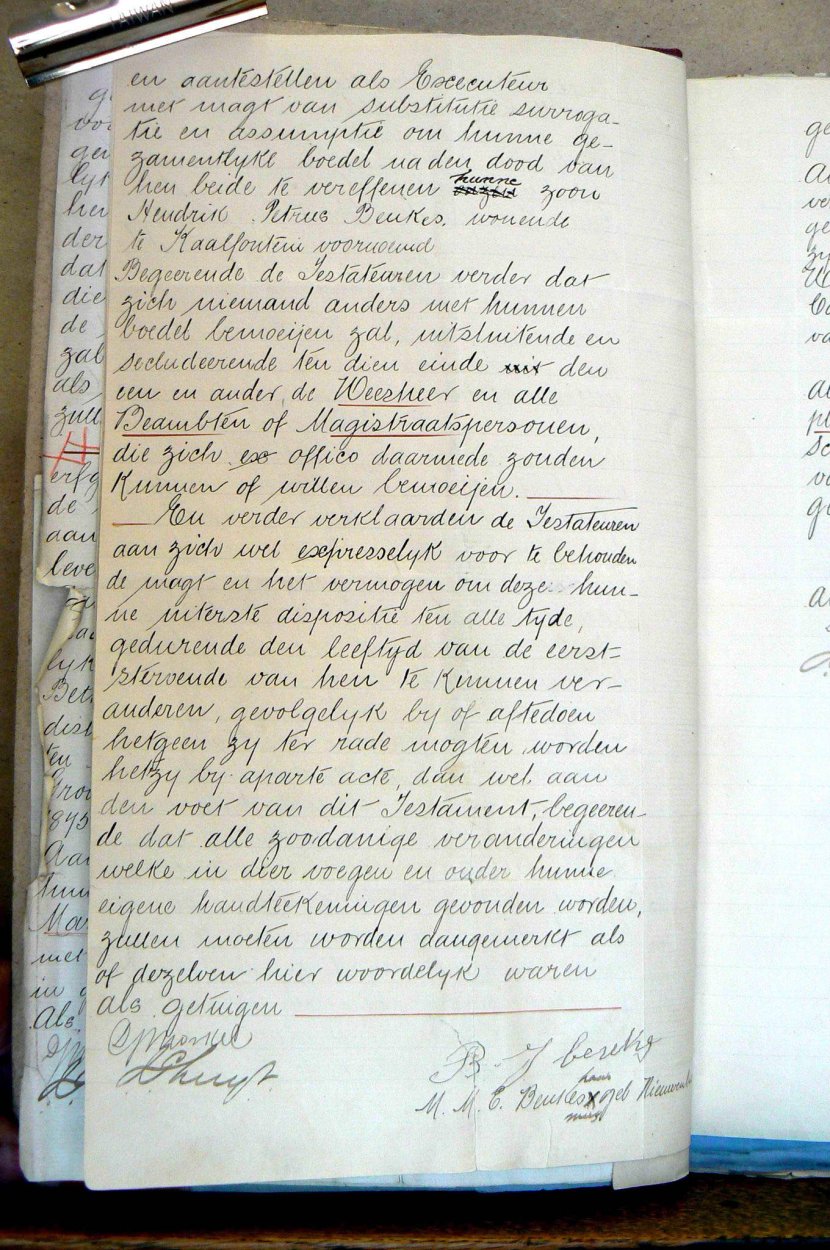 TAIWAN
en aantestellen als Executeur
met magt van substitutie surroga-
tie en assumptie om hunne ge-
zamentlyke boedel na den dood van
hen beide te vereffenen hunne zoon
Hendrik Petrus Beukes, wonende
te Kaalfontein voornoemd
Begeerende de Testateuren verder dat
zich niemand anders met hunnen
boedel bemoeijen zal, uitsluitende en
secludeerende ten dien einde den
een en ander, de Weesheer en alle
Beambten of Magistraatspersonen,
die zich ex officio daarmede zouden
kunnen of willen bemoeijen.
En verder verklaarden de Testateuren
aan zich wel expresselyk voor te behouden
de magt en het vermogen om deze hun-
ne uiterste dispositie ten alle tyde,
gedurende den leeftyd van de eerst-
stervende van hen te kunnen ver-
anderen, gevolgelyk by of aftedoen
hetgeen zy ter rade mogten worden
hetzy by aparte acte, dan wel aan
den voet van dit Testament, begeeren-
de dat alle zoodanige veranderingen
welke in dier voegen en onder hunne
eigene handteekeningen gevonden worden,
zullen moeten worden aangemerkt als
of dezelven hier woordelyk waren
als getuigen
B. J
M. M. C. Beukes X geb